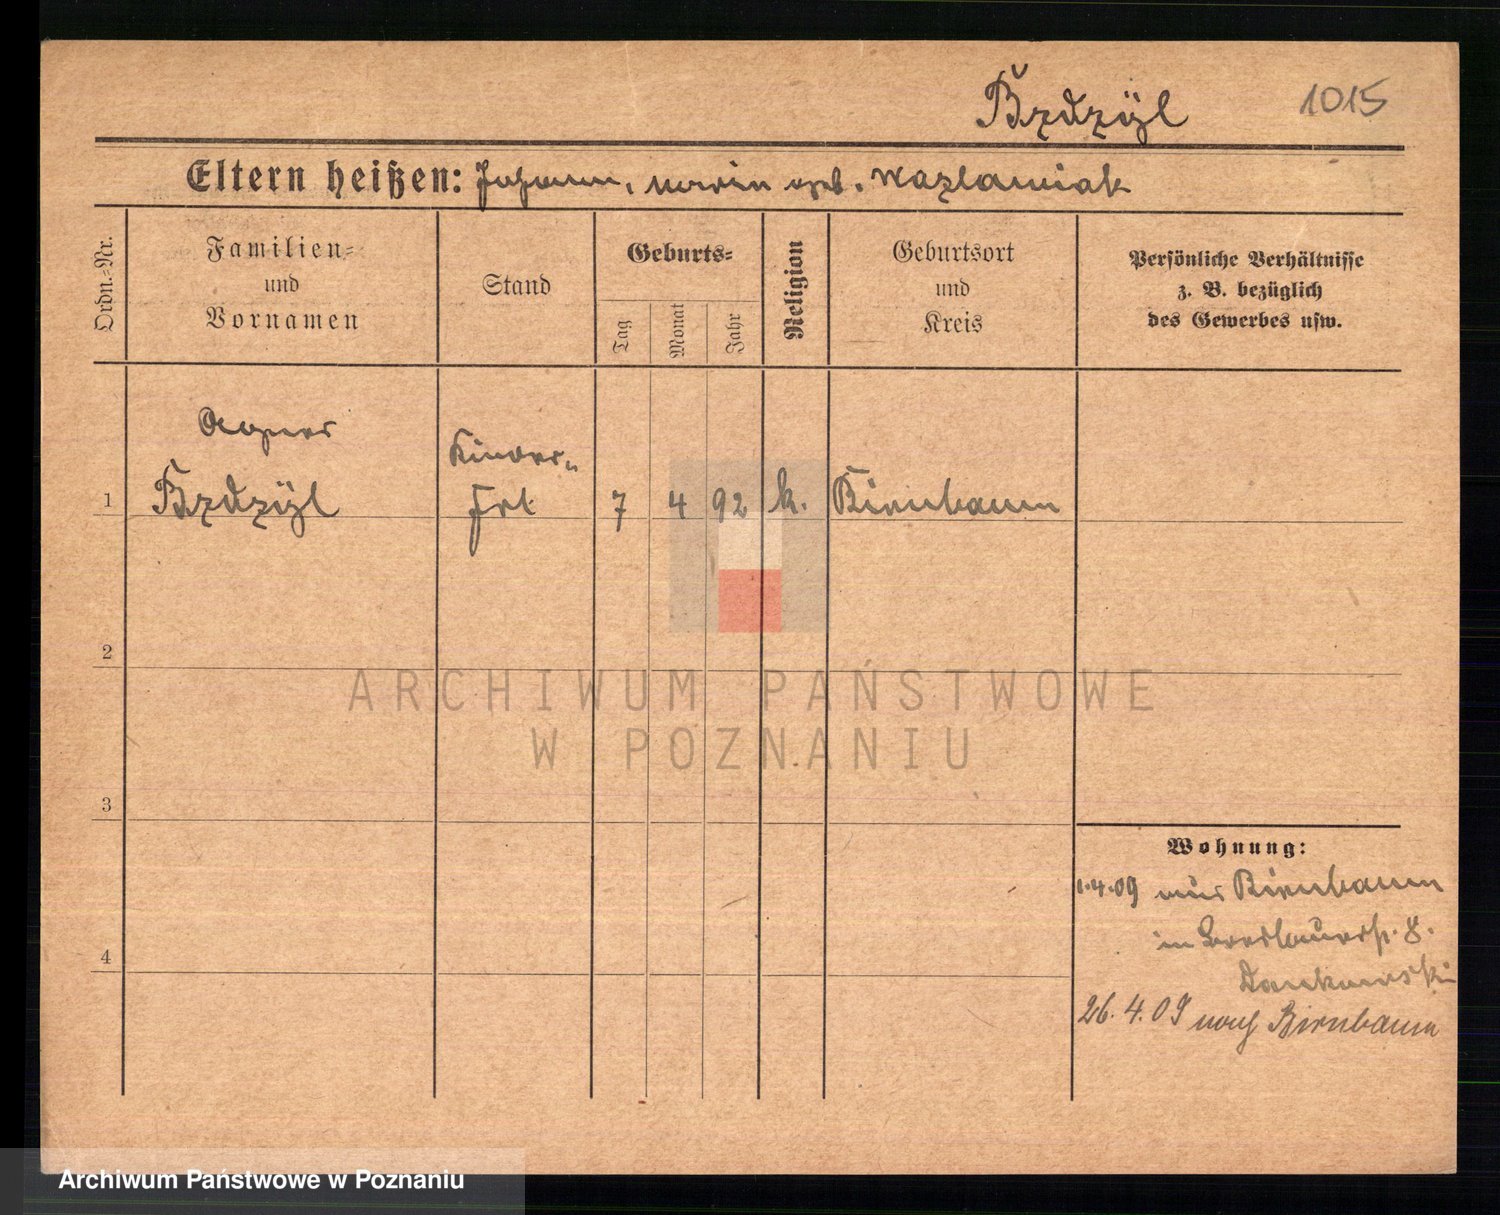 Bzdzÿl 1015
Eltern heißen: Johann, Maria geb. Wazlawiak
Ordn.-Nr.
Familien-
und
Vornamen
Stand
Geburts-
Tag
Monat
Jahr
Religion
Geburtsort
und
Kreis
Persönliche Verhältnisse
z. B. bezüglich
des Gewerbes usw.
Agnes
Kinder-
1 Bzdzÿl Frl. 7 4 92 k. Birnbaum
2
ARCHIWUM PAŃSTWOWE
W POZNANIU
3
Wohnung:
1.4.09 aus Birnbaum
in 8.
Dankowski
4
26.4.09 nach Birnbaum
Archiwum Państwowe w Poznaniu